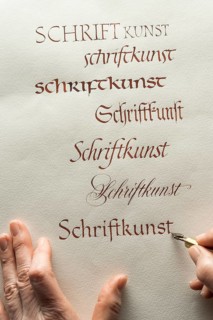 SCHRIFTKUNST
schriftkunst
schriftkunst
Schriftkunst
Schriftkunst
Schriftkunst
Schriftkunst